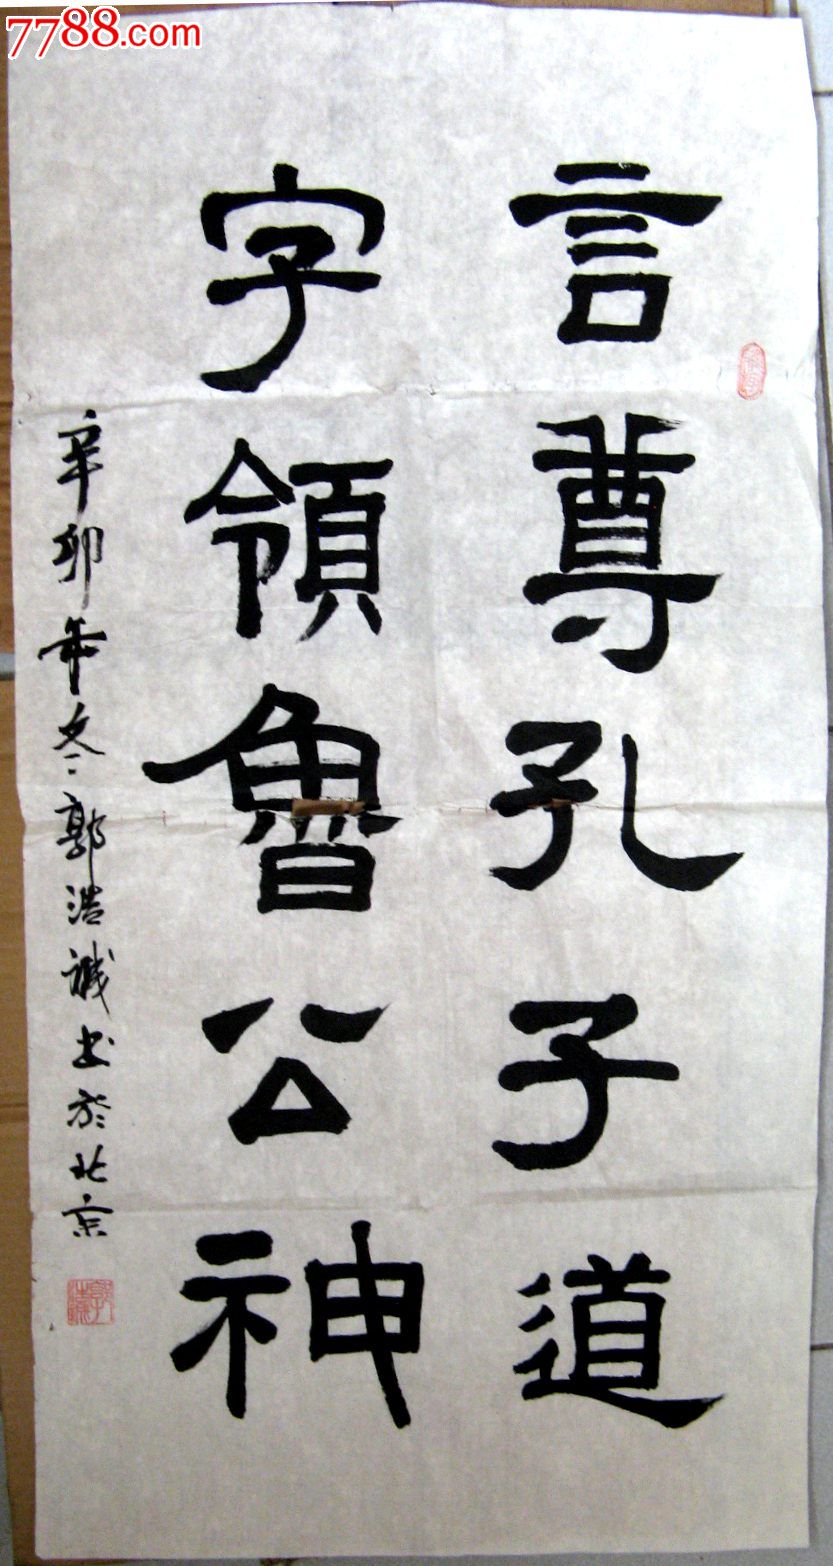 7788.com
言尊孔子道
字領魯公神
辛卯年冬郭浩誠书於北京